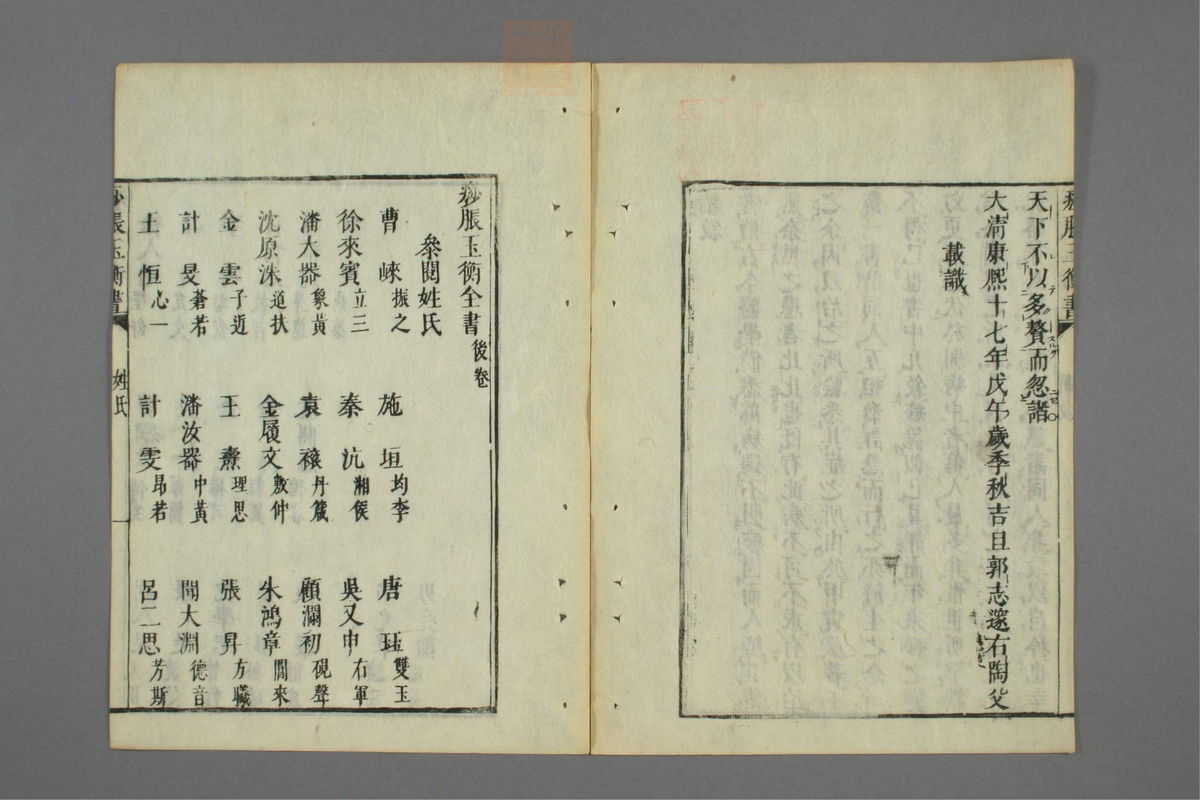 痧脹玉衡書
天下不以多贅而忽諸
大清康熙十七年戊午歲季秋吉旦郭志邃右陶父
載識
痧脹玉衡全書後卷
叅閱姓氏
曹崍振之 施垣均李 唐珏雙玉
徐來賓立三 秦沆湘侯 吳又申右軍
潘大器象黃 袁襏丹箴 顧瀾初硯聲
沈原洙道扶 金履文敷仲 朱鴻章聞來
金雲子逝 王燾理思 張昇方曦
計旻蒼若 潘汝器中黃 聞大淵德音
王恒心一 計雯昂若 呂二思芳斯
痧脹玉衡書 姓氏 一